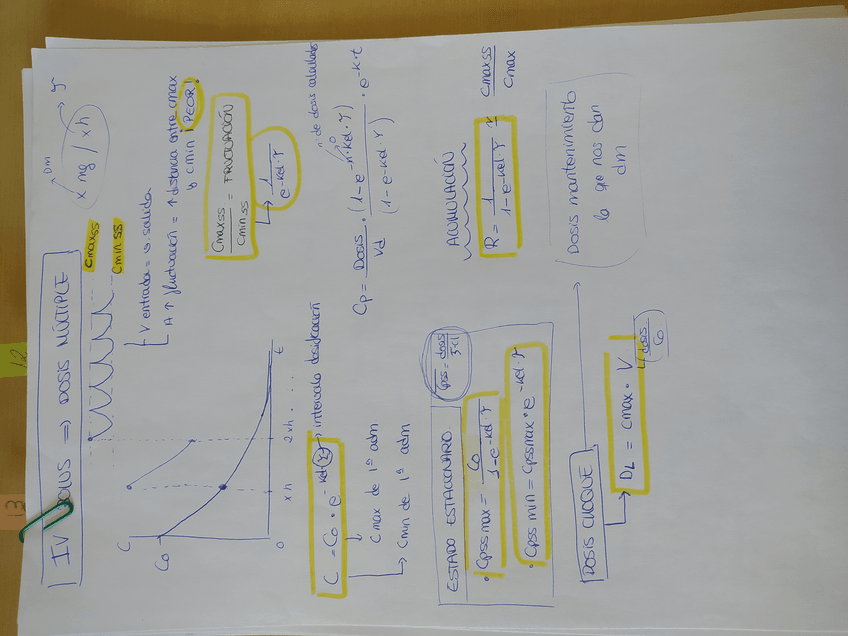 13
12
IV BOLUS => DOSIS MÚLTIPLE
DM
x mg / xh
Cmaxss
Cminss
V entrada = v. salida
A ↑ fluctuación = ↑ distancia entre cmax y cmin ¡PEOR!
C
Co
0
xh
2xh
...
t
Cmaxss / Cminss = FLUCTUACIÓN
1 / e-kel·τ
C = Co · e-kel·τ
intervalo dosificación
Cmax de 1ª adm
Cmin de 1ª adm
nº de dosis calculadas
Cp = Dosis / Vd · (1-e-n·kel·τ) / (1-e-kel·τ) · e-k·t
ESTADO ESTACIONARIO
Cpss = dosis
· Cpssmax = Co / 1-e-kel·τ
· Cpssmin = Cpssmax · e-kel·τ
ACUMULACIÓN
R = 1 / 1-e-kel·τ
Cmaxss / Cmax
DOSIS CHOQUE
DL = Cmax · V
dosis / Co
Dosis mantenimiento
la que nos dan
dm